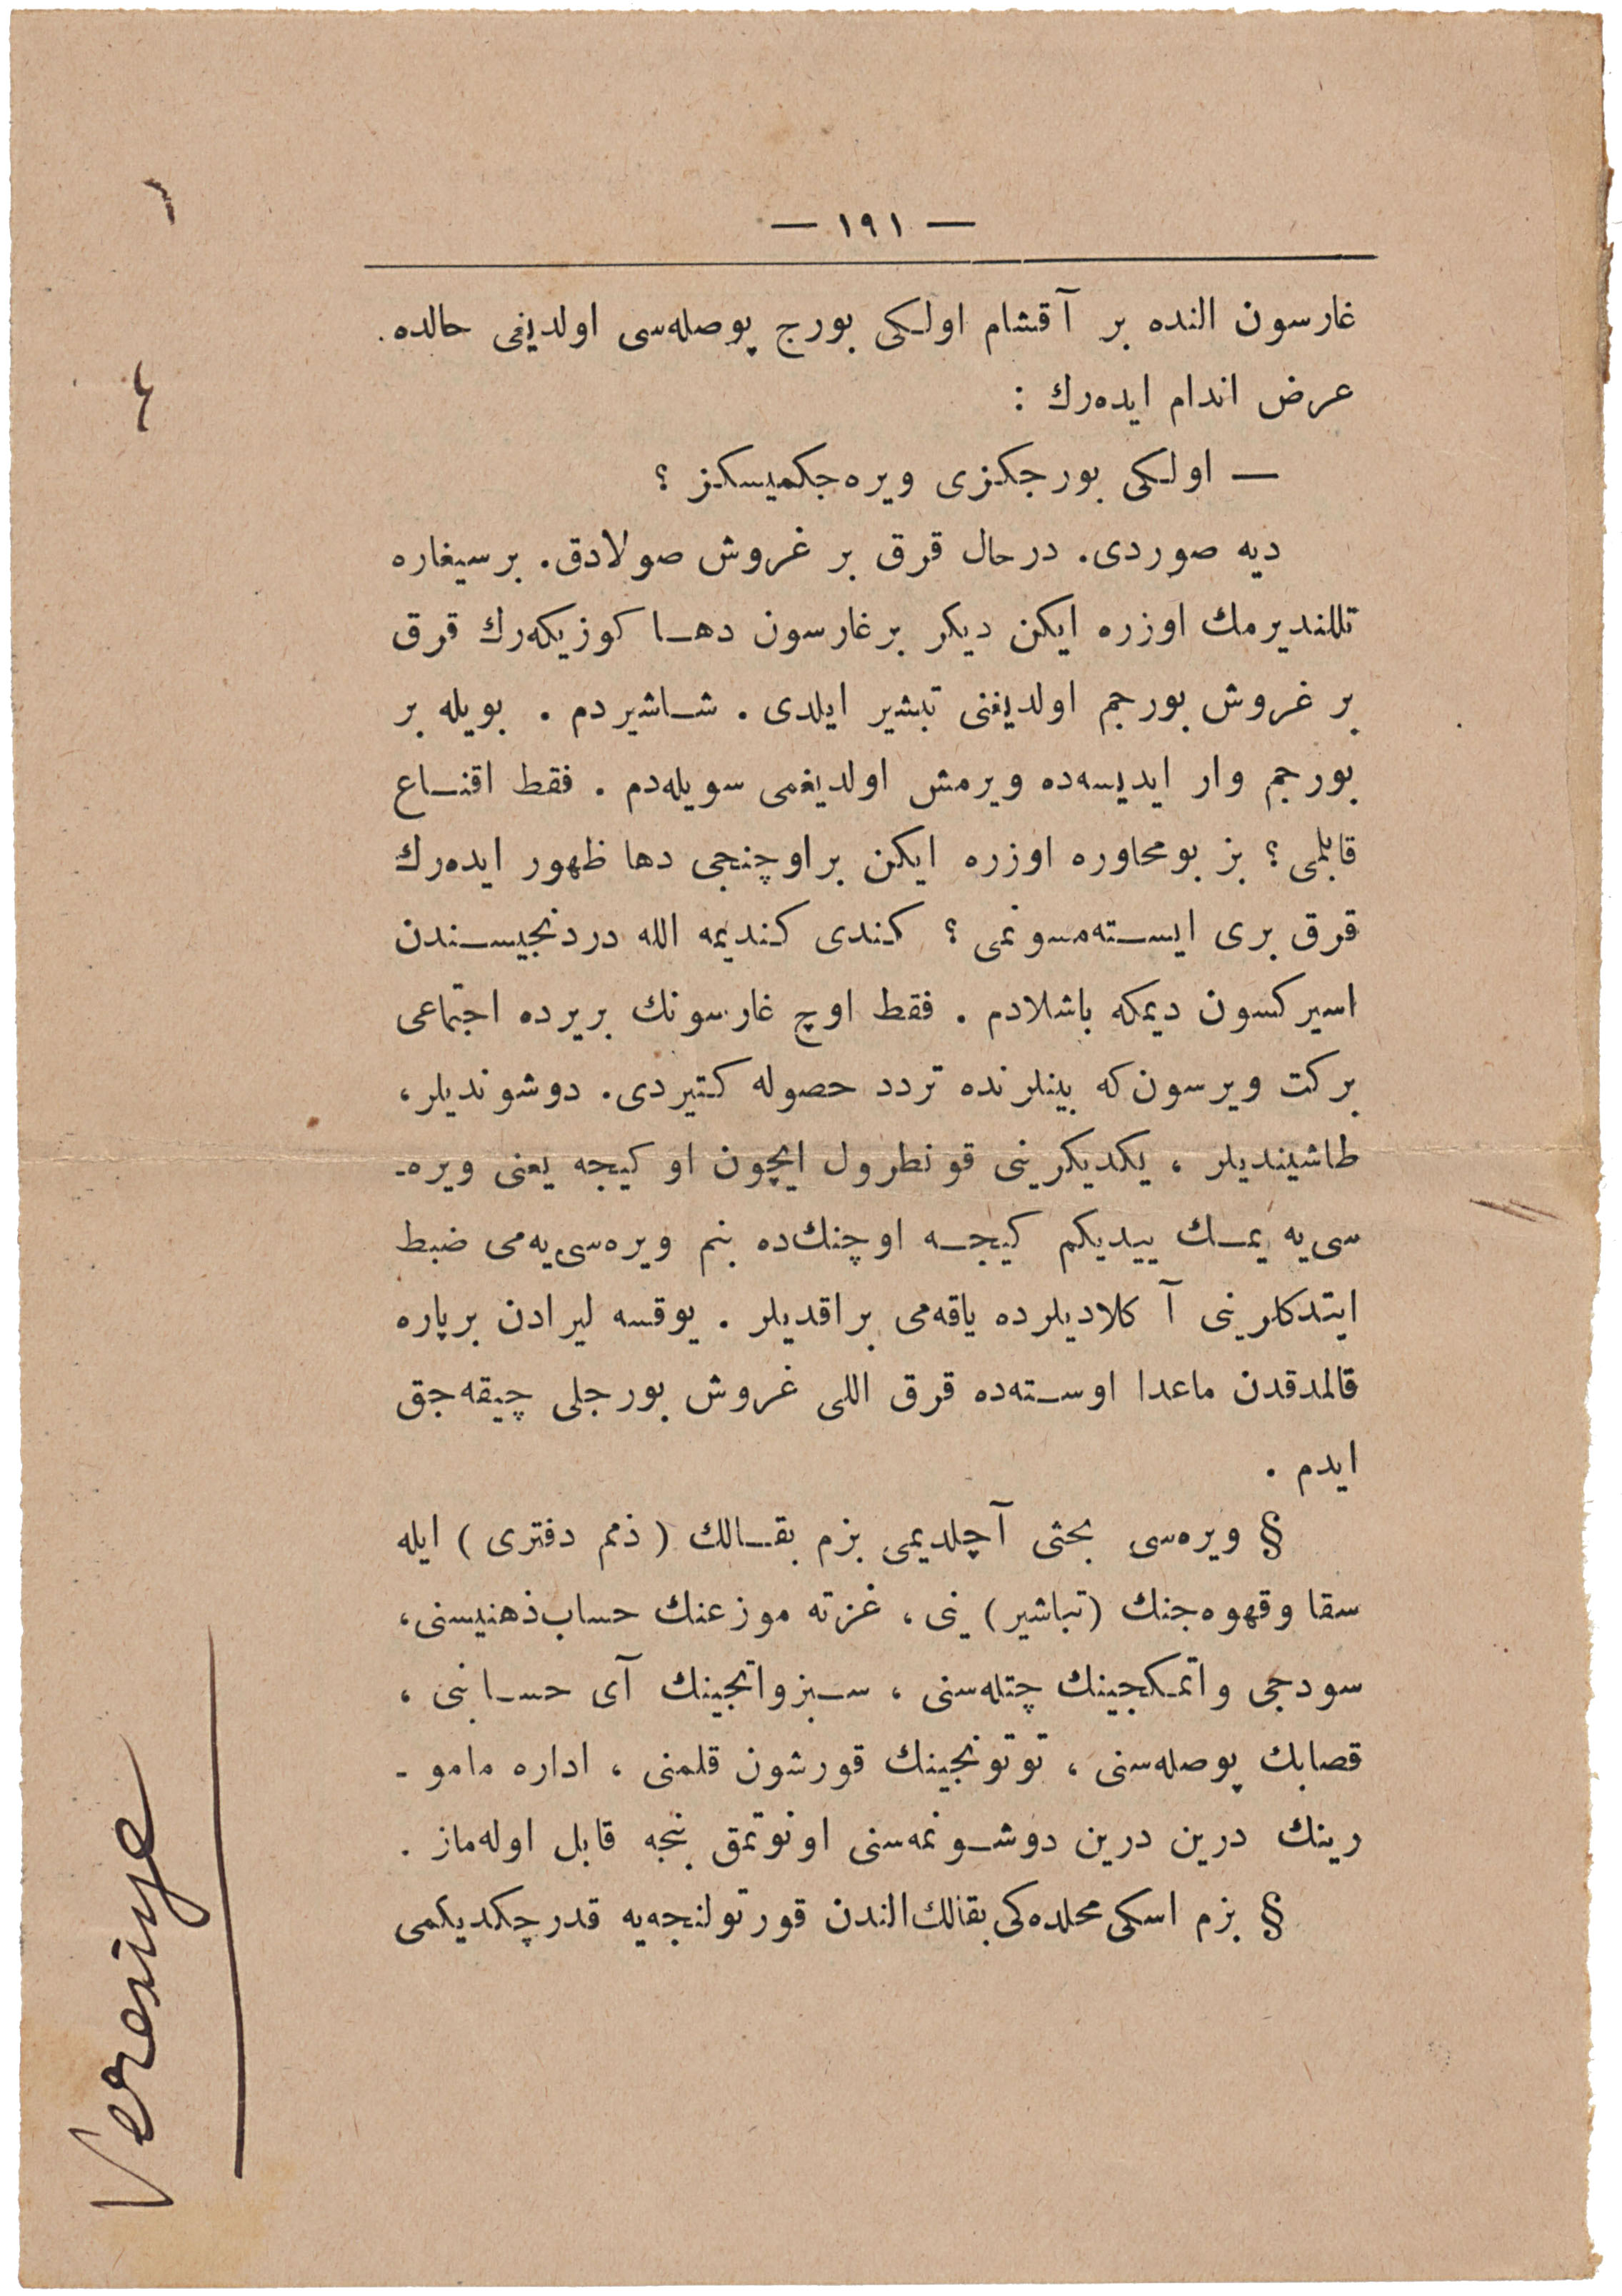 — ١٩١ —
غارسون النده بر آقشام اولكی بورج پوصله‌سی اولدیغی حالده.
عرض اندام ایده‌رك :
— اولكی بورجكزی ویره‌جكمیسكز ؟
دیه صوردی. درحال قرق بر غروش صولادق. بر سیغاره
تللندیرمك اوزره ایكن دیكر بر غارسون دهـا كوزیكه‌رك قرق
بر غروش بورجم اولدیغنی تبشیر ایلدی . شـاشیردم . بویله بر
بورجم وار ایدیسه‌ده ویرمش اولدیغمی سویله‌دم . فقط اقنـاع
قابلمی ؟ بز بو محاوره اوزره ایكن بر اوچنجی دها ظهور ایده‌رك
قرق بری ایسـته‌مسونمی ؟ كندی كندیمه الله دردنجیسـندن
اسیركسون دیمكه باشلادم . فقط اوچ غارسونك بریرده اجتماعی
بركت ویرسون‌كه بینلرنده تردد حصوله كتیردی. دوشوندیلر،
طاشیندیلر ، یكدیكرینی قونطرول ایچون او كیجه یعنی ویره‌-
سی‌یه یمـك ییدیكم كیجـه اوچنك‌ده بنم ویره‌سی‌یه‌می ضبط
ایتدكلرینی آ كلادیلرده یاقه‌می براقدیلر . یوقسه لیرادن بر پاره
قالمدقدن ماعدا اوسـته‌ده قرق اللی غروش بورجلی چیقه‌جق
ایدم .
§ ویره‌سی بحثی آچلدیمی بزم بقـالك ( ذمم دفتری ) ایله
سقا و قهوه‌جنك (تباشیر) ینی ، غزته موزعنك حساب‌ذهنیسنی،
سودجی و اتمكجینك چتله‌سنی ، سـبزواتجینك آی حسـابنی ،
قصابك پوصله‌سنی ، توتونجینك قورشون قلمنی ، اداره مامو -
رینك درین درین دوشـونمه‌سنی اونوتمق بنجه قابل اوله‌ماز .
§ بزم اسكی محلده‌كی بقالك الندن قورتولنجه‌یه قدر چكدیكمی
Veresiye